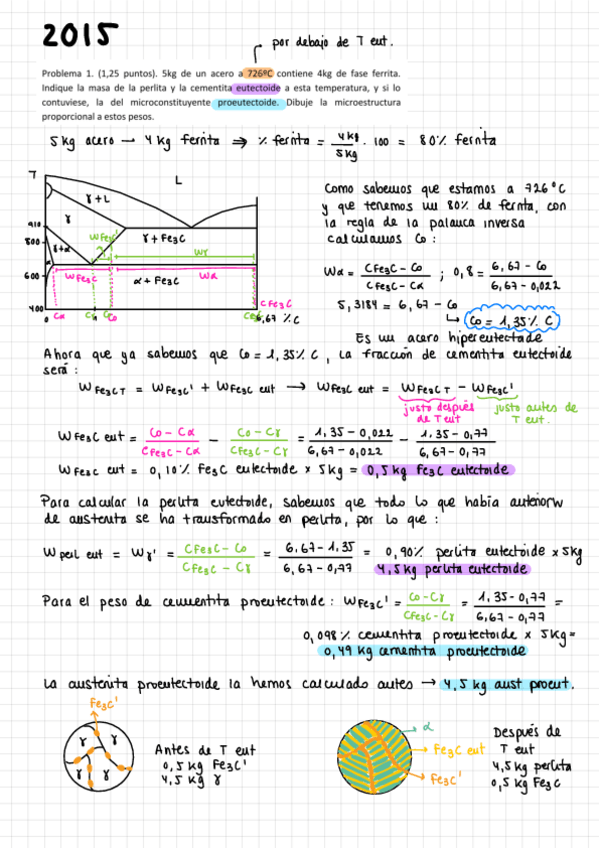 2015
por debajo de T eut.
Problema 1. (1,25 puntos). 5kg de un acero a 726ºC contiene 4kg de fase ferrita.
Indique la masa de la perlita y la cementita eutectoide a esta temperatura, y si lo
contuviese, la del microconstituyente proeutectoide. Dibuje la microestructura
proporcional a estos pesos.
5kg acero → 4 kg ferrita ⇒ % ferrita = 4kg/5kg · 100 = 80% ferrita
T
L
γ+L
γ
910
WFe3C'
γ + Fe3C
Wγ
800
γ+α
α
WFe3C
α + Fe3C
Wα
600
400
0
Cα
Cγ
Co
CFe3C
6,67 % C
Como sabemos que estamos a 726°C
y que tenemos un 80% de ferrita, con
la regla de la palanca inversa
calculamos Co:
Wα = CFe3C - Co / CFe3C - Cα ; 0,8 = 6,67 - Co / 6,67 - 0,022
5,3184 = 6,67 - Co
↳ Co = 1,35% C
Es un acero hipereutectoide
Ahora que ya sabemos que Co = 1,35% C, la fracción de cementita eutectoide
será:
WFe3C T = WFe3C' + WFe3C eut → WFe3C eut = WFe3C T - WFe3C'
justo después de T eut
justo antes de T eut.
WFe3C eut = Co - Cα / CFe3C - Cα - Co - Cγ / CFe3C - Cγ = 1,35 - 0,022 / 6,67 - 0,022 - 1,35 - 0,77 / 6,67 - 0,77
WFe3C eut = 0,10% Fe3C eutectoide x 5kg = 0,5 kg Fe3C eutectoide
Para calcular la perlita eutectoide, sabemos que todo lo que había anteriorm
de austenita se ha transformado en perlita, por lo que:
W perl eut = Wγ' = CFe3C - Co / CFe3C - Cγ = 6,67 - 1,35 / 6,67 - 0,77 = 0,90% perlita eutectoide x 5kg
4,5 kg perlita eutectoide
Para el peso de cementita proeutectoide: WFe3C' = Co - Cγ / CFe3C - Cγ = 1,35 - 0,77 / 6,67 - 0,77 =
0,098% cementita proeutectoide x 5kg =
0,49 kg cementita proeutectoide
La austenita proeutectoide la hemos calculado antes → 4,5 kg aust proeut.
Fe3C'
γ
γ
γ
γ
Antes de T eut
0,5 kg Fe3C'
4,5 kg γ
α
Fe3C eut
Fe3C'
Después de
T eut
4,5 kg perlita
0,5 kg Fe3C